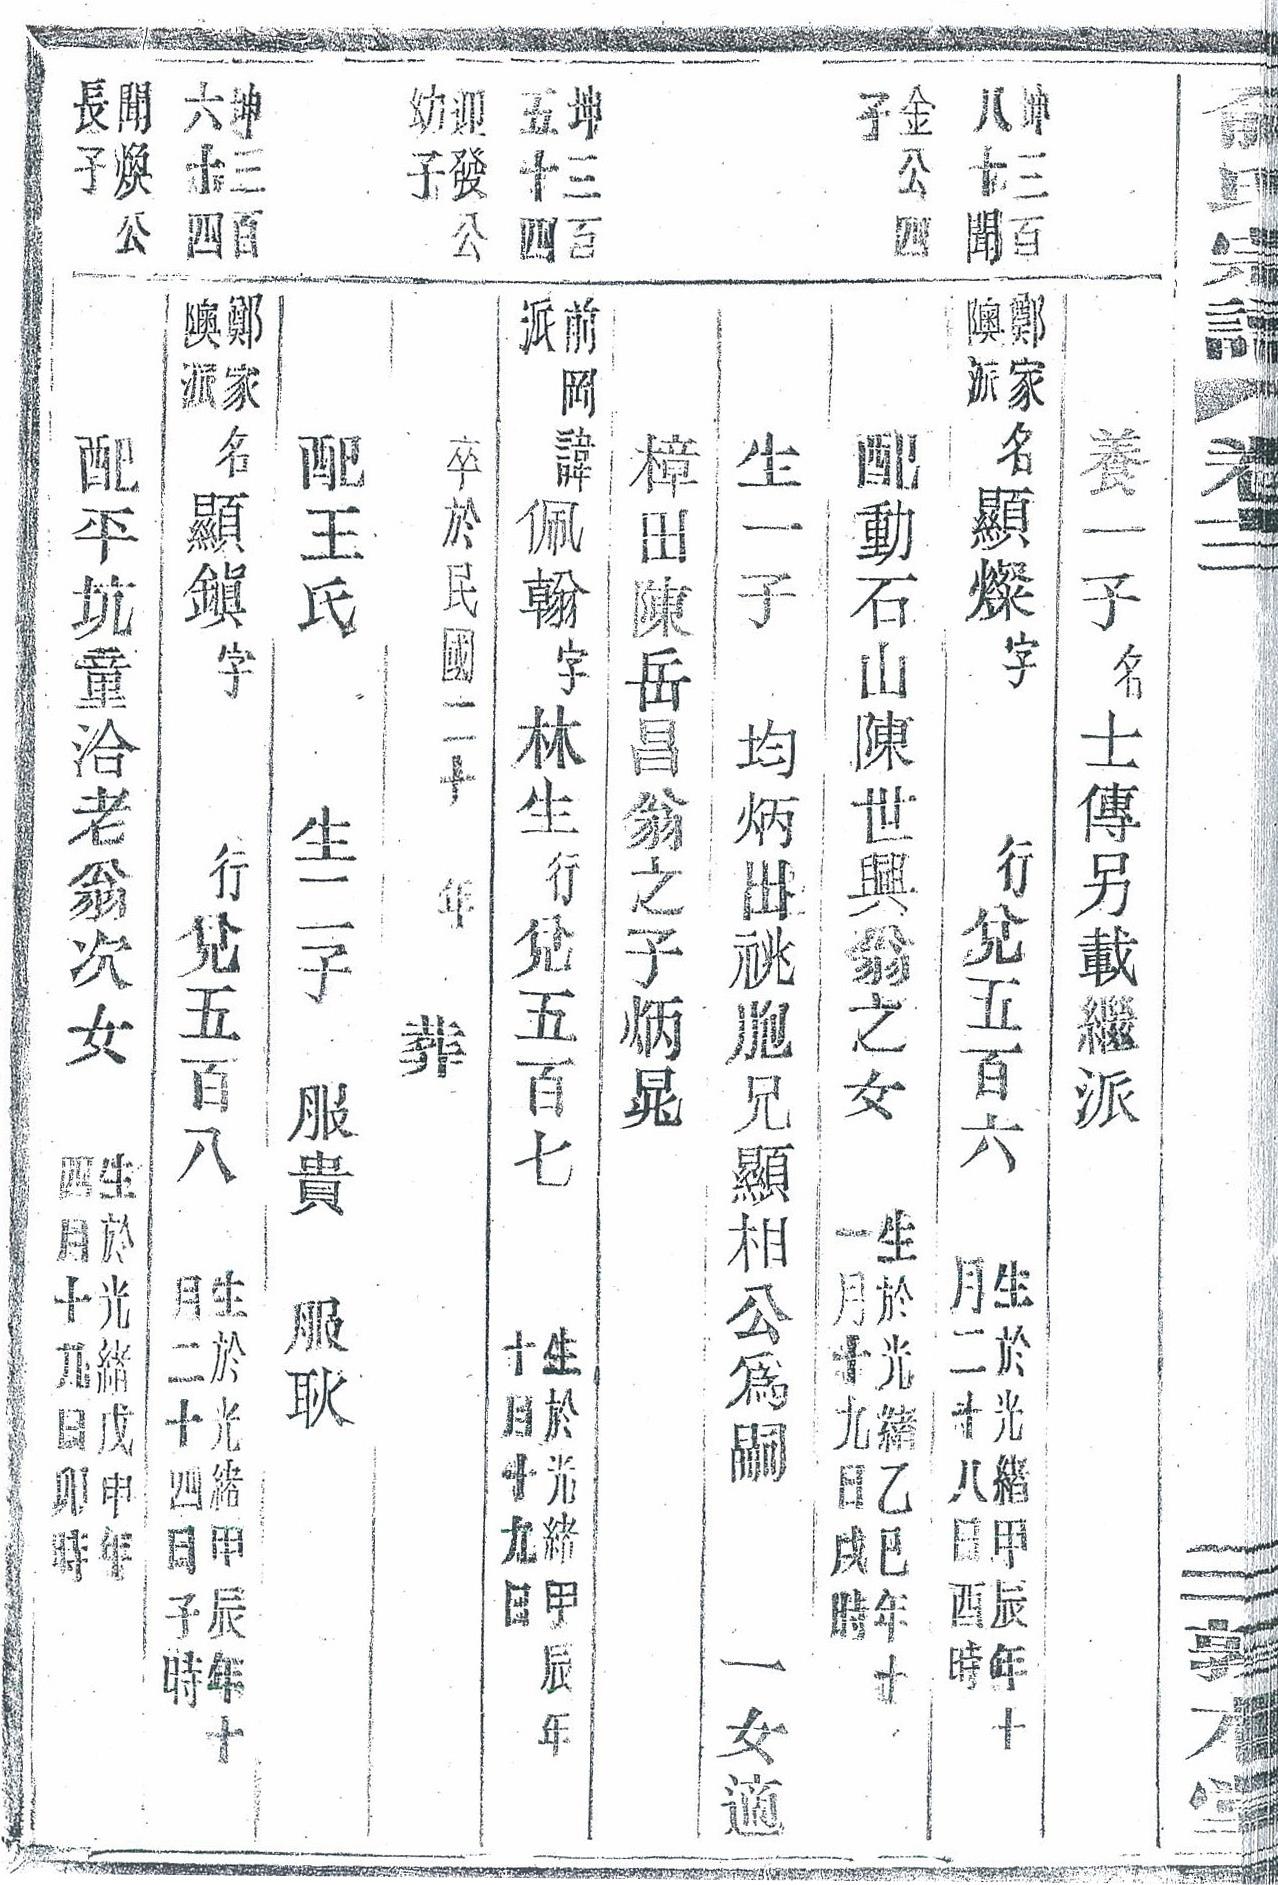 俞氏宗譜 卷二 三 敦本堂
養一子 名士傳另載繼派
坤三百八十聞金公四子
鄭家隩派 名顯燦 字 行兌五百六 生於光緒甲辰年十月二十八日酉時
配動石山陳世興翁之女 生於光緒乙巳年十一月十九日戌時
生一子 均炳出祧胞兄顯相公為嗣 一女適
樟田陳岳昌翁之子炳晃
坤三百五十四迎發公幼子
前岡派 諱佩翰 字林生 行兌五百七 生於光緒甲辰年十月十九日
卒於民國二十 年 葬
配王氏 生二子 服貴 服耿
坤三百六十四聞煥公長子
鄭家隩派 名顯鎮 字 行兌五百八 生於光緒甲辰年十月二十四日子時
配平坑童洽老翁次女 生於光緒戊申年四月十九日卯時